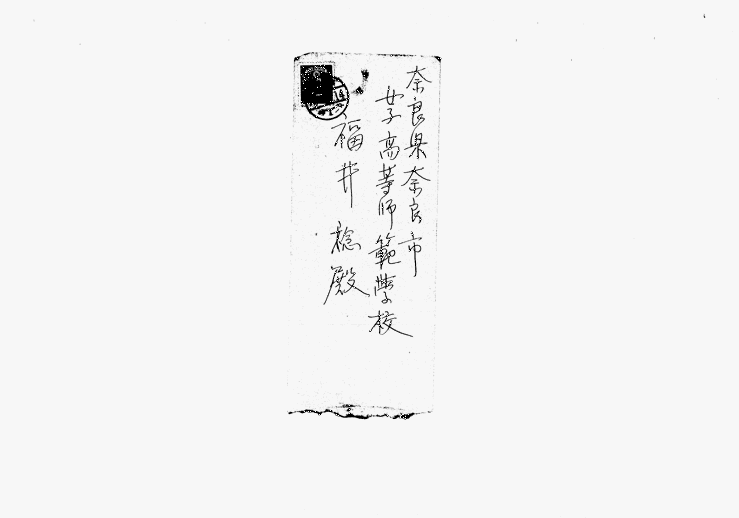 奈良県奈良市
女子高等師範學校
福井 稔殿